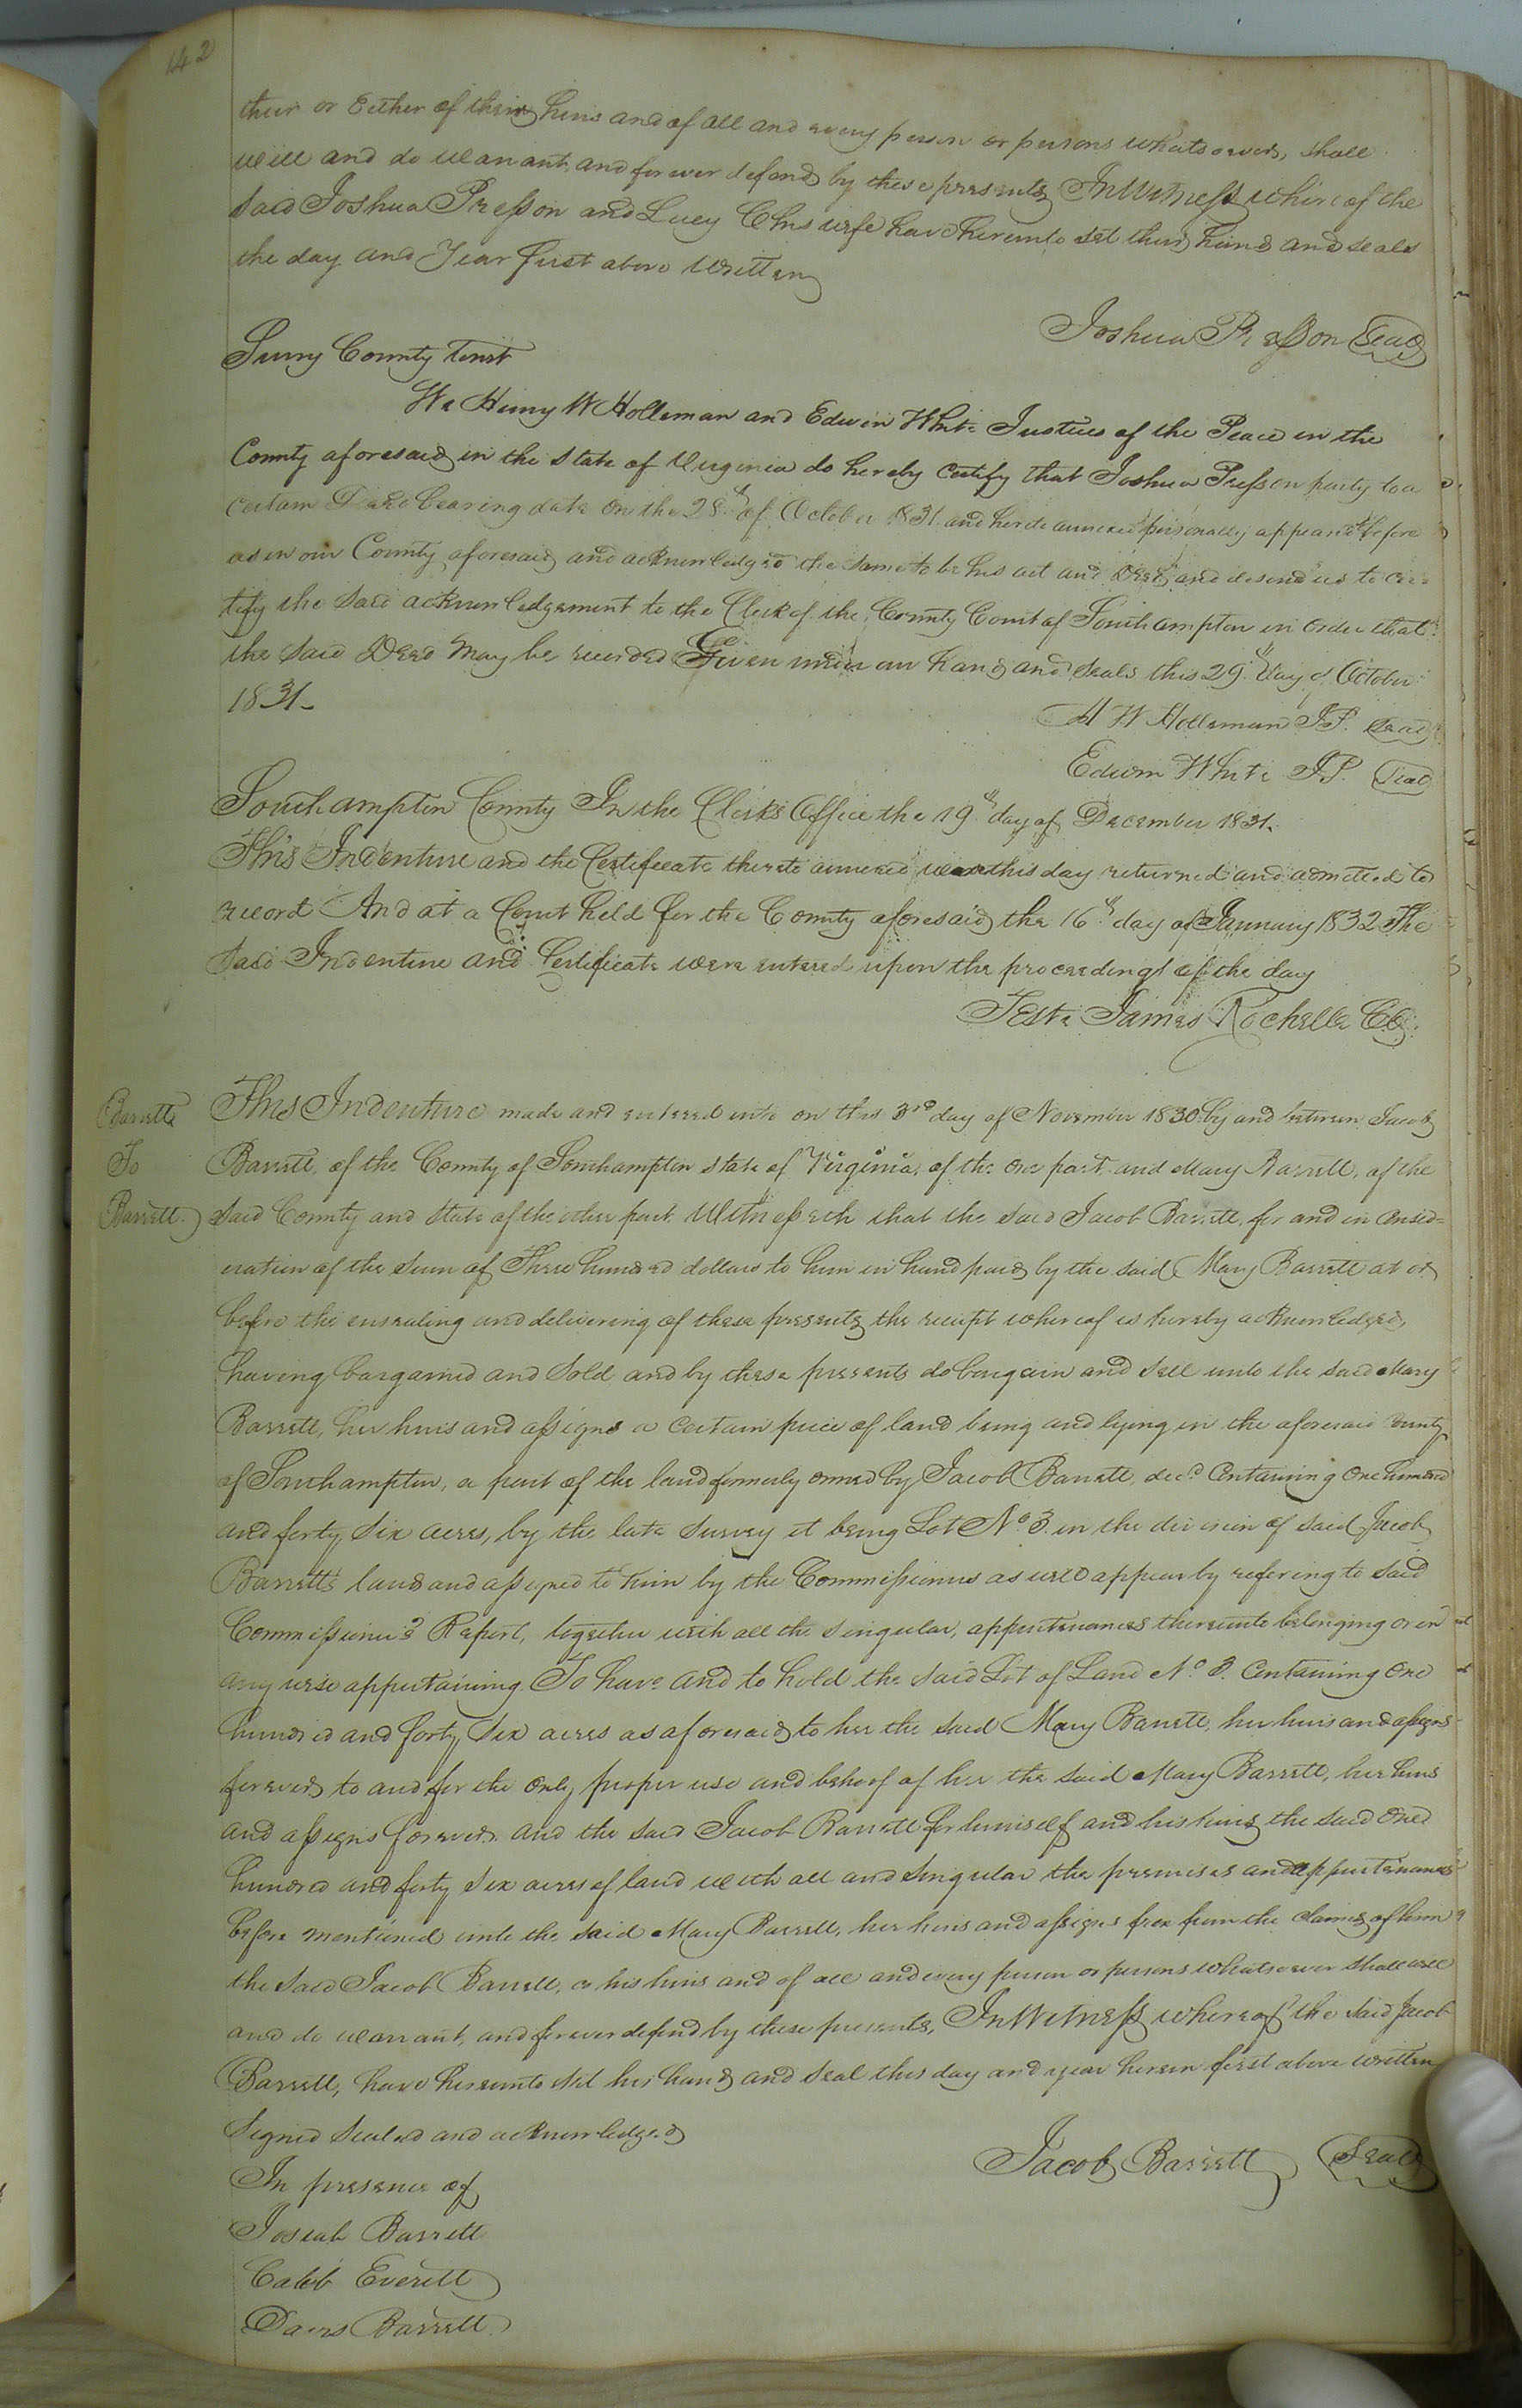 142
their or Either of their heirs and of all and every person or persons whatsoever, shall
will and do warrant and forever defend by these presents In Witness whereof the
said Joshua Presson and Lucy C his wife have hereunto set their hands and seals
the day and Year first above written
Joshua Presson Seal
Surry County towit
We Henry W Holleman and Edwin White Justices of the Peace in the
County aforesaid in the State of Virginia do hereby Certify that Joshua Presson party to a
certain Deed bearing date on the 28th of October 1831 and hereto annexed personally appeared before
us in our County aforesaid and acknowledged the same to be his act and Deed and desired us to cer=
tify the said acknowledgement to the Clerk of the County Court of Southampton in order that
the said Deed May be recorded Given under our hands and seals this 29th day of October
1831.
H W Holleman J.P. Seal
Edwin White J.P. Seal
Southampton County In the Clerks Office the 19th day of December 1831.
This Indenture and the Certificate thereto annexed were this day returned and admitted to
record And at a Court held for the County aforesaid the 16th day of January 1832 The
said Indenture and Certificate were entered upon the proceedings of the day
Teste James Rochelle CC.
Barrett
To
Barrett
This Indenture made and entered into on this 3rd day of November 1830 by and between Jacob
Barrett, of the County of Southampton state of Virginia, of the one part and Mary Barrett, of the
said County and State of the other part Witnesseth that the said Jacob Barrett, for and in consid=
eration of the sum of Three hundred dollars to him in hand paid by the said Mary Barrett at or
before the ensealing and delivering of these presents the receipt whereof is hereby acknowledged,
having bargained and sold and by these presents do bargain and sell unto the said Mary
Barrett, her heirs and assigns a certain piece of land being and lying in the aforesaid County
of Southampton, a part of the land formerly owned by Jacob Barrett, decd Containing One hundred
and forty six acres, by the late survey it being Lot No 3 in the division of said Jacob
Barrett's land and assigned to him by the Commissioners as will appear by refering to said
Commissioner's Report, together with all the singular, appurtenances thereunto belonging or in
any wise appertaining. To have and to hold the said Lot of Land No 3. Containing One
hundred and forty six acres as aforesaid to her the said Mary Barrett, her heirs and assigns
forever to and for the only proper use and behoof of her the said Mary Barrett, her heirs
and assigns forever. and the said Jacob Barrett for himself and his heirs the said One
hundred and forty six acres of land with all and singular the premises and appurtenances
before mentioned unto the said Mary Barrett, her heirs and assigns free from the claims of him
the said Jacob Barrett, or his heirs and of all and every person or persons whatsoever shall will
and do warrant, and forever defend by these presents, In Witness whereof the said Jacob
Barrett, have hereunto set his hand and seal this day and year herein first above written
Signed Sealed and acknowledged
In presence of
Jacob Barrett Seal
Josiah Barrett
Caleb Everitt
Davis Barrett